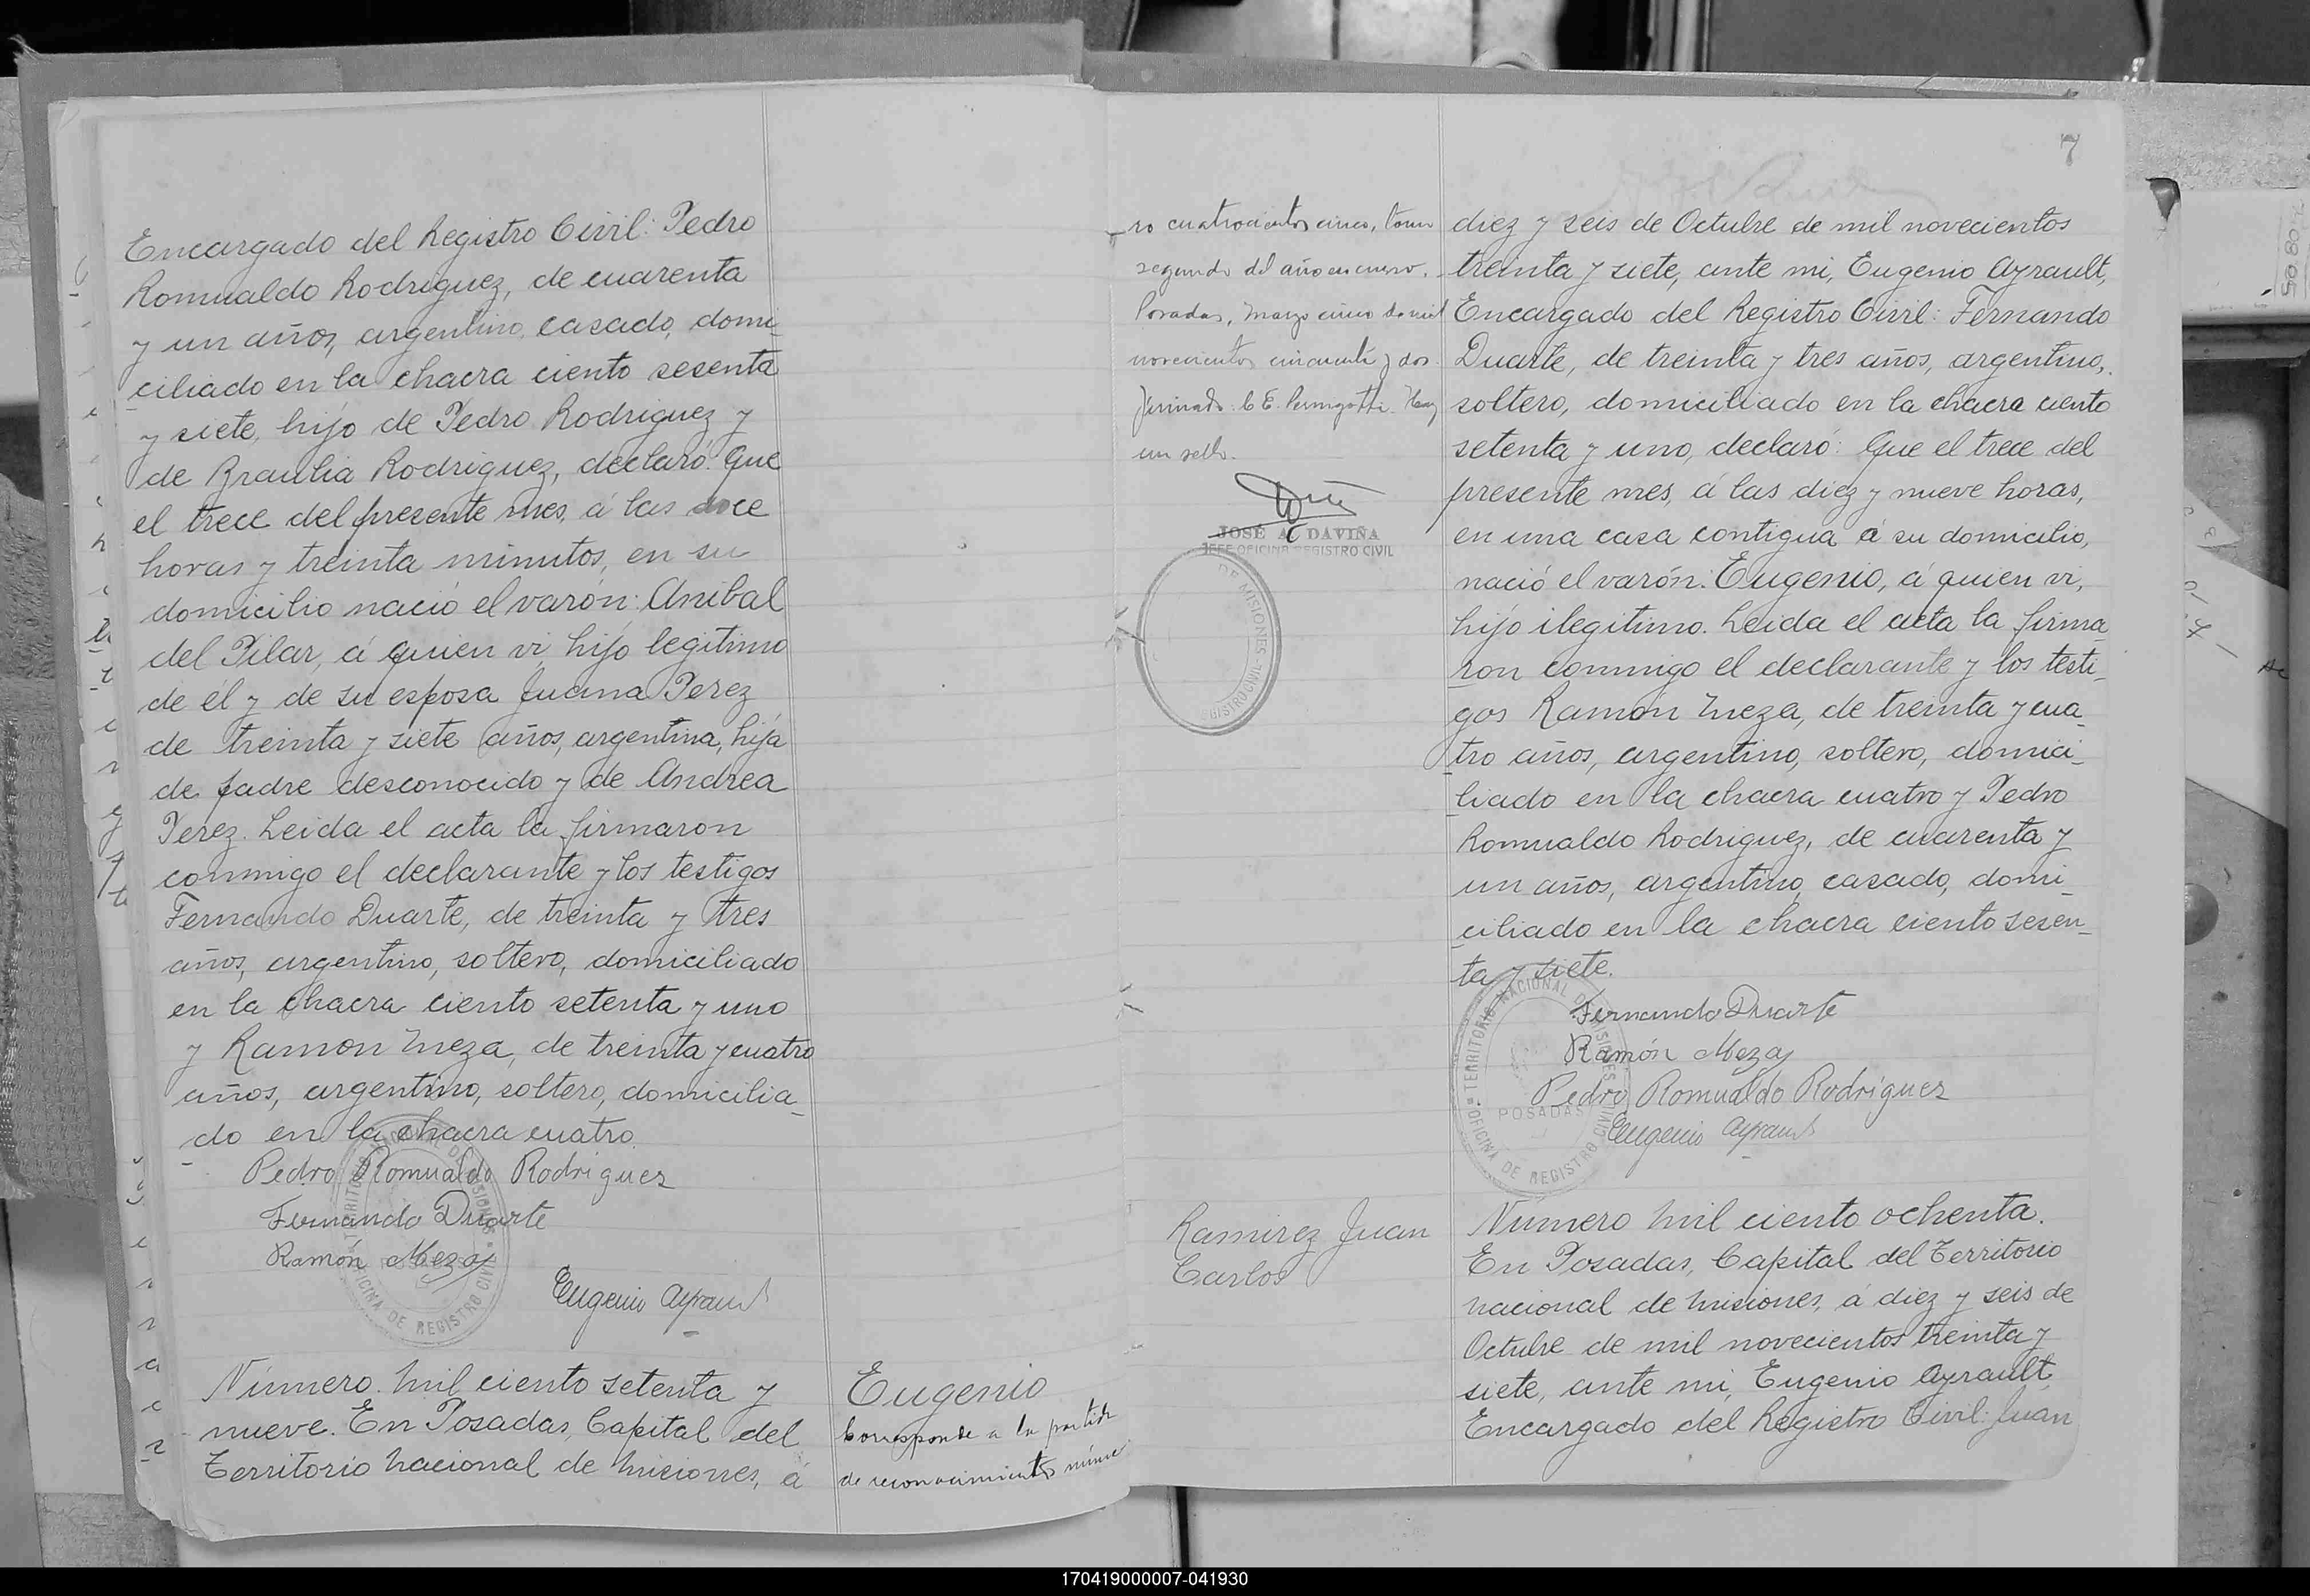 Encargado del Registro Civil: Pedro
Romualdo Rodriguez, de cuarenta
y un años, argentino, casado, domi_
ciliado en la chacra ciento sesenta
y siete, hijo de Pedro Rodriguez y
de Braulia Rodriguez, declaró: Que
el trece del presente mes, á las doce
horas y treinta minutos, en su
domicilio nació el varón: Anibal
del Pilar, á quien vi, hijo legitimo
de él y de su esposa Juana Perez
de treinta y siete años, argentina, hija
de padre desconocido y de Andrea
Perez. Leida el acta la firmaron
conmigo el declarante y los testigos
Fernando Duarte, de treinta y tres
años, argentino, soltero, domiciliado
en la chacra ciento setenta y uno
y Ramon Meza, de treinta y cuatro
años, argentino, soltero, domicilia_
do en la chacra cuatro.
Pedro Romualdo Rodrigues
Fernando Duarte
Ramón Meza
Eugenio Ayrault
Número mil ciento setenta y
nueve. En Posadas, Capital del
Territorio Nacional de Misiones, á
Eugenio
Corresponde a la partida
de reconocimientos núme
7
ro cuatrocientos cinco, tomo
segundo del año en curso.
Posadas, marzo cinco de mil
novecientos cincuenta y dos.
firmado: C. E. Hay
un sello.
JOSÉ A. DAVIÑA
JEFE OFICINA REGISTRO CIVIL
DE MISIONES
REGISTRO CIVIL
diez y seis de Octubre de mil novecientos
treinta y siete, ante mi, Eugenio Ayrault,
Encargado del Registro Civil: Fernando
Duarte, de treinta y tres años, argentino,
soltero, domiciliado en la chacra ciento
setenta y uno, declaró: Que el trece del
presente mes, á las diez y nueve horas,
en una casa contigua á su domicilio,
nació el varón: Eugenio, á quien vi,
hijo ilegitimo. Leida el acta la firma_
ron conmigo el declarante y los testi_
gos Ramon Meza, de treinta y cua_
tro años, argentino, soltero, domici_
liado en la chacra cuatro y Pedro
Romualdo Rodriguez, de cuarenta y
un años, argentino, casado, domi_
ciliado en la chacra ciento sesen_
ta y siete.
Fernando Duarte
Ramón Meza
Pedro Romualdo Rodrigues
Eugenio Ayrault
TERRITORIO NACIONAL DE MISIONES
POSADAS
OFICINA DE REGISTRO CIVIL
Ramirez Juan
Carlos
Número mil ciento ochenta.
En Posadas, Capital del Territorio
Nacional de Misiones, á diez y seis de
Octubre de mil novecientos treinta y
siete, ante mi, Eugenio Ayrault,
Encargado del Registro Civil: Juan
170419000007-041930